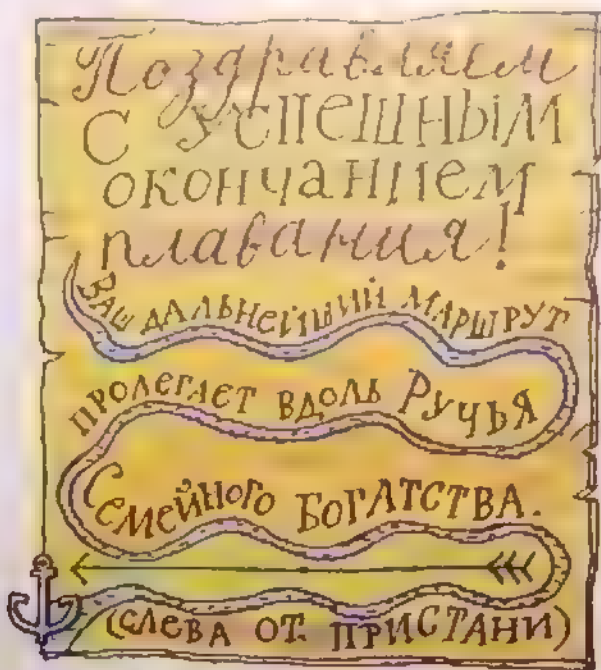 Поздравляем
с успешным
окончанием
плавания!
Ваш дальнейший маршрут
пролегает вдоль Ручья
Семейного Богатства.
(слева от пристани)